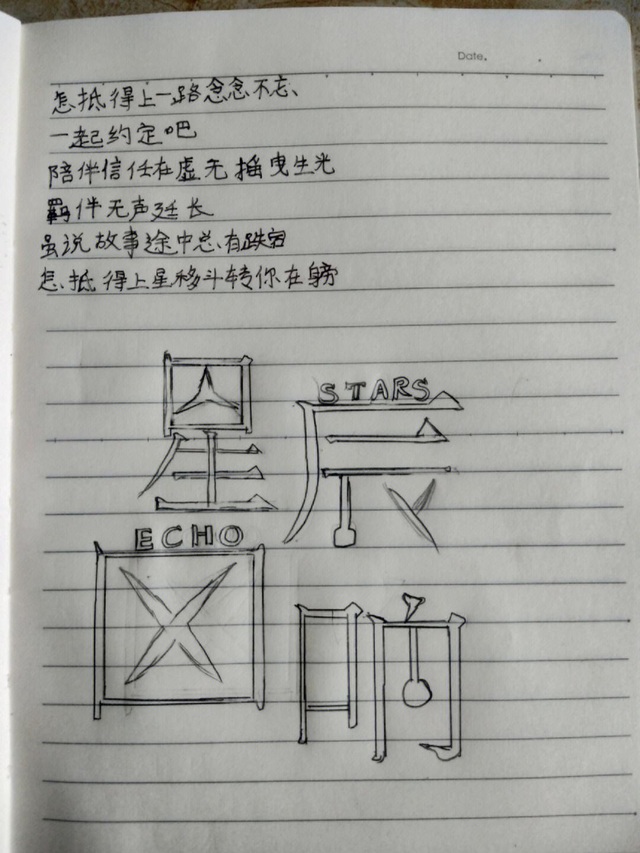 Date.
怎抵得上一路念念不忘、
一起约定吧
陪伴信任在虚无摇曳生光
羁伴无声延长
虽说故事途中总有跌宕
怎抵得上星移斗转你在旁
STARS
星辰
ECHO
回响